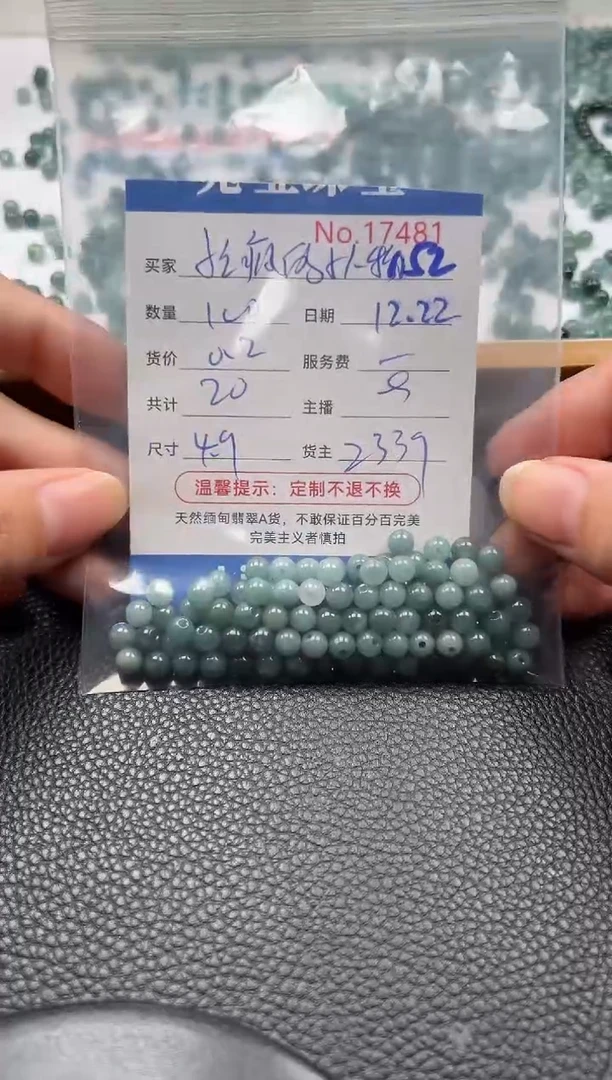 No.17481
买家 52
数量 100 日期 12.22
货价 0.2 服务费 一
共计 20 主播
尺寸 4.9 货主 2339
温馨提示：定制不退不换
天然缅甸翡翠A货，不敢保证百分百完美
完美主义者慎拍